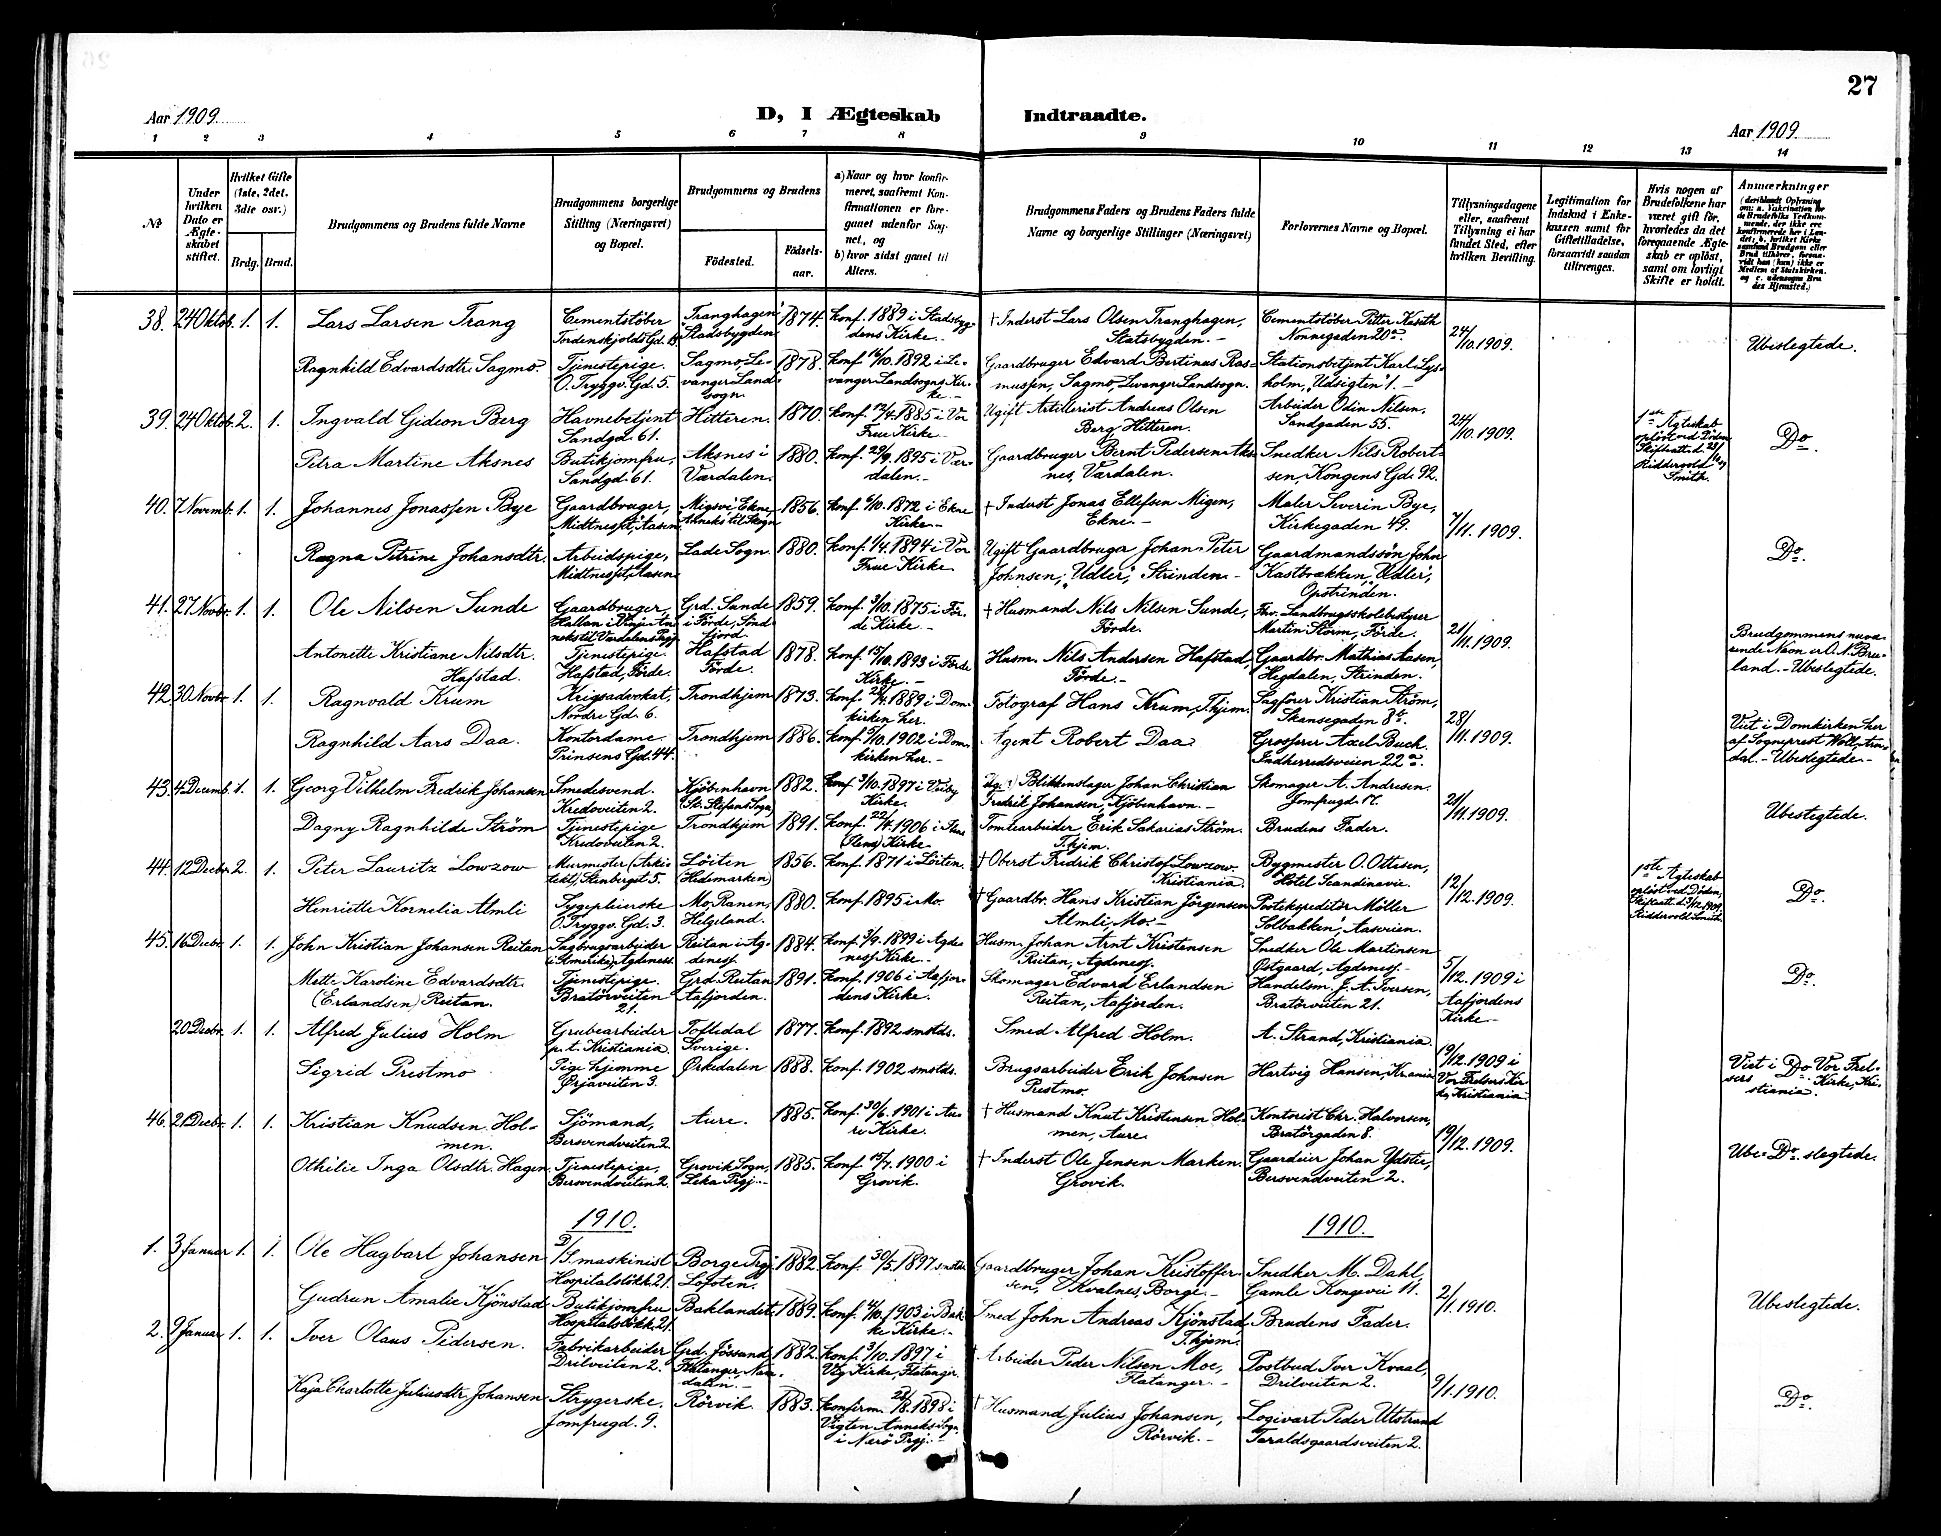 27
Aar 1909.
D, I Ægteskab Indtraadte.
Aar 1909.
1 2 3 4 5 6 7 8 9 10 11 12 13 14
№
Under
hvilken
Dato er
Ægte-
skabet
stiftet.
Hvilket Gifte
(1ste, 2det,
3die osv.)
Brdg.
Brud.
Brudgommens og Brudens fulde Navne
Brudgommens borgerlige
Stilling (Næringsvei)
og Bopæl.
Brudgommens og Brudens
Fødested.
Fødsels-
aar.
a) Naar og hvor konfir-
meret, saafremt Kon-
firmationen er fore-
gaaet udenfor Sog-
net, og
b) hvor sidst gaaet til
Alters.
Brudgommens Faders og Brudens Faders fulde
Navne og borgerlige Stillinger (Næringsvei)
Forlovernes Navne og Bopæl.
Tillysningsdagene
eller, saafremt
Tillysning ei har
fundet Sted, efter
hvilken Bevilling.
Legitimation for
Indskud i Enke-
kassen samt for
Giftetilladelse,
forsaavidt saadan
tiltrænges.
Hvis nogen af
Brudefolkene har
været gift før,
hvorledes da det
foregaaende Ægte-
skab er opløst,
samt om lovligt
Skifte er holdt.
Anmærkninger
38. 24 Oktob. 1. 1. Lars Larsen Trang
Cementstöber
Tordenskjolds Gd.
Tranghagen
Stadsbygden
1874.
Konf. 1889 i Stadsbyg-
dens Kirke.
† Inderst Lars Olsen Tranghagen,
Statsbygden.
Cementstöber Petter Kaseth
Nonnegaden 20a.
24/10.1909.
Ubeslegtede.
Ragnhild Edvardsdtr. Sagmo.
Tjenestepige.
O. Tryggv. Gd. 5.
Sagmo, Le-
vanger Land-
sogn.
1878.
Konf. 16/10. 1892 i Le-
vanger Landsogns Kir-
ke.
Gaardbruger Edvard Bertinus Ras-
mussen, Sagmo, Levanger Landsogn.
Stationsbetjent Karl Lys-
holm, "Udsigten" 1.
39. 24 Oktob. 2. 1. Ingvald Gideon Berg
Havnebetjent
Sandgd. 61.
Hitteren.
1870.
Konf. 12/4. 1885 i Vor
Frue Kirke.
Ugift Artillerist Andreas Olsen
Berg Hitteren.
Arbeider Odin Nilsen,
Sandgaden 55.
24/10.1909.
1ste Ægteskab
opløst ved Döden
Skifteatt. d. 23/10 09
Riddervold
Smith.
Do.
Petra Martine Aksnes
Butikjomfru,
Sandgd. 61.
Aksnes i
Værdalen.
1880.
Konf. 29/9. 1895 i Vær-
dalen.
Gaardbruger Bernt Pedersen Aks-
nes, Værdalen.
Snedker Nils Robert-
sen, Kongens Gd. 92.
40. 7 Novemb. 1. 1. Johannes Jonassen Bye
Gaardbruger,
Midtnesset, Aasen
Migsvi Ekne,
Anneks til Skogn
1856.
Konf. 6/10. 1872 i Ekne
Kirke.
† Inderst Jonas Ellefsen Migen,
Ekne.
Maler Severin Bye,
Kirkegaden 49.
7/11.1909.
Do.
Ragna Petrine Johansdtr.
Arbeidspige,
Midtnesset, Aasen
Lade Sogn
1880.
Konf. 1/4. 1894 i Vor
Frue Kirke
Ugift Gaardbruger Johan Peter
Johnsen, "Udler", Strinden.
Gaardmandssön John
Kastbrækken, "Udler",
Opstrinden.
41. 27 Novbr. 1. 1. Ole Nilsen Sunde
Gaardbruger,
Grd. Sunde
i Förde, Sönd-
fjord
1859.
Konf. 3/10. 1875 i För-
de Kirke.
† Husmand Nils Nilsen Sunde,
Förde.
Fhv. Landbrugsskolebestyrer
Martin Störm, Förde.
21/11.1909.
Brudgommens nuvæ-
rende Navn er O. N. Bru-
land. - Ubeslegtede.
Antonette Kristiane Nilsdtr.
Hafstad.
Tjenestepige.
Hafstad, Förde.
Hafstad
Förde.
1878.
Konf. 15/10. 1893 i Förde
Kirke.
Husm. Nils Andersen Hafstad,
Förde.
Gaardbr. Mathias Aasen,
Hegdalen, Strinden.
42. 30 Novbr. 1. 1. Ragnvald Krum
Krigsadvokat,
Nordre Gd. 6.
Trondhjem
1873.
Konf. 28/4. 1889 i Dom-
kirken her.
Fotograf Hans Krum, T.hjem.
Sagförer Kristian Ström,
Skansegaden 8b.
28/11.1909.
Viet i Domkirken her
af Sogneprest Woll, Aren-
dal. - Ubeslegtede.
Ragnhild Aars Daa.
Kontordame.
Prinsens Gd. 44.
Trondhjem
1886.
Konf. 5/10. 1902 i Dom-
kirken her.
Agent Robert Daa
Grosserer Axel Buch.
Indherredsveien 22a.
43. 4 Decemb. 1. 1. Georg Vilhelm Fredrik Johansen
Smedesvend.
Kredoveiten 2.
Kjöbenhavn
(St. Stefans Sogn)
1882.
Konf. 3/10. 1897 i Veiby
Kirke.
Blikkenslager Johan Christian
Fredrik Johansen, Kjöbenhavn.
Skomager A. Andresen.
Jomfrugd. 17.
21/11.1909.
Ubeslegtede.
Dagny Ragnhilde Ström
Tjenestepige
Kredoveiten 2.
Trondhjem
1891.
Konf. 22/4. 1906 i
Kirke
Tomtearbeider Erik Sakarias Ström.
T.hjem.
Brudens Fader.
44. 12 Decbr. 2. 1. Peter Lauritz Lowzow
Murmester (Arki-
tekt), Stenberget 5.
Löiten
(Hedemarken)
1856.
Konf. 1871 i Löiten.
† Oberst Fredrik Christof Lowzow.
Kristiania.
Bygmester O. Ottesen,
Hotel Scandinavie.
12/12.1909.
1ste Ægteskab
oplöst ved Döden,
Skifteatt. d. 3/12.1909.
Riddervold Smith.
Do.
Henriette Kornelia Almli
Sygepleierske
O. Tryggv. Gd. 3.
Mo, Ranen,
Helgeland.
1880.
Konf. 1895 i Mo.
† Gaardbr. Hans Kristian Jörgensen
Almli, Mo.
Protekspeditör Möller
"Solbakken", Aasveien.
45. 16 Decbr. 1. 1. John Kristian Johansen Reitan
Sagbrugsarbeider
i Amerika, Agdeness
Reitan i Ag-
deness.
1884.
Konf. 3/9. 1899 i Agde-
ness Kirke.
Husm. Johan Arnt Kristensen
Reitan, Agdeness.
Snedker Ole Martinsen
Östgaard, Agdeness.
5/12.1909 i
Aafjordens
Kirke
Do.
Mette Karoline Edvardsdtr.
(Erlandsen) Reitan.
Tjenestepige.
Bratörveiten
21.
Grd. Reitan
Aafjorden.
1891.
Konf. 1906 i Aafjor-
dens Kirke.
Skomager Edvard Erlandsen
Reitan, Aafjorden.
Handelsm. J. A. Iversen,
Bratörveiten 21.
20 Decbr. 1. 1. Alfred Julius Holm
Grubearbeider
p.t. Kristiania.
Toftedal
Sverige.
1877.
Konf. 1892 smstds.
Smed Alfred Holm.
A. Strand, Kristiania.
19/12.1909 i
Vor Frelsers Kir-
ke, Kristiania
Viet i Do Vor Frel-
sers Kirke, Kri-
stiania.
Sigrid Prestmo
Pige hjemme
Ørjaveiten 3.
Ørkedalen
1888.
Konf. 1902 smstds.
Brugsarbeider Erik Johnsen
Prestmo.
Hartvig Hansen, Kr.ania
46. 21 Decbr. 1. 1. Kristian Knudsen Hol-
men.
Sjömand,
Bersvendveiten 2.
Aure.
1885.
Konf. 30/6. 1901 i Au-
re Kirke.
† Husmand Knut Kristensen Hol-
men, Aure.
Kontorist Chr. Halvorsen,
Bratörgaden 8.
19/12.1909.
Ube- Do. slegtede.
Othilie Inga Olsdtr. Hagen
Tjenestepige,
Bersvendveiten 2.
Grovik Sogn,
Leka Prgj.
1885.
Konf. 15/7. 1900 i
Grovik.
† Inderst Ole Jensen Marken.
Grovik.
Gaardeier Johan Ydstie,
Bersvendveiten 2.
1910.
1910.
1. 3 Januar 1. 1. Ole Hagbart Johansen
D/S. maskinist
Hospitalslökk. 21.
Borge Prgj.
Lofoten.
1882.
Konf. 30/5. 1897 smstds.
Gaardbruger Johan Kristoffer-
sen, Kvalnes, Borge.
Snedker M. Dahl,
Gamle Kongevei 11.
2/1.1910.
Ubeslegtede.
Gudrun Amalie Kjönstad
Butikjomfru
Hospitalslökk. 21.
Baklandet
1889.
Konf. 4/10. 1903 i Bak-
ke Kirke.
Smed John Andreas Kjönstad,
T.hjem.
Brudens Fader.
2. 9 Januar 1. 1. Iver Olaus Pedersen.
Fabrikarbeider
Drilveiten 2.
Grd. Jössund
Flatanger, Nam-
dalen.
1882.
Konf. 3/10. 1897 i
Vig Kirke, Flatanger.
† Arbeider Peder Nilsen Moe,
Flatanger.
Postbud Iver Kvaal,
Drilveiten 2.
9/1.1910.
Do.
Kaja Charlotte Juliusdtr. Johansen
Strygerske.
Jomfrugd. 9.
Rörvik
1883.
Konfirm. 28/8. 1898 i
Vigten Anneks Sogn
i Nærö Prgj.
† Husmand Julius Johansen,
Rörvik.
Logivært Peder Utstrand
Taraldsgaardsveiten 2.